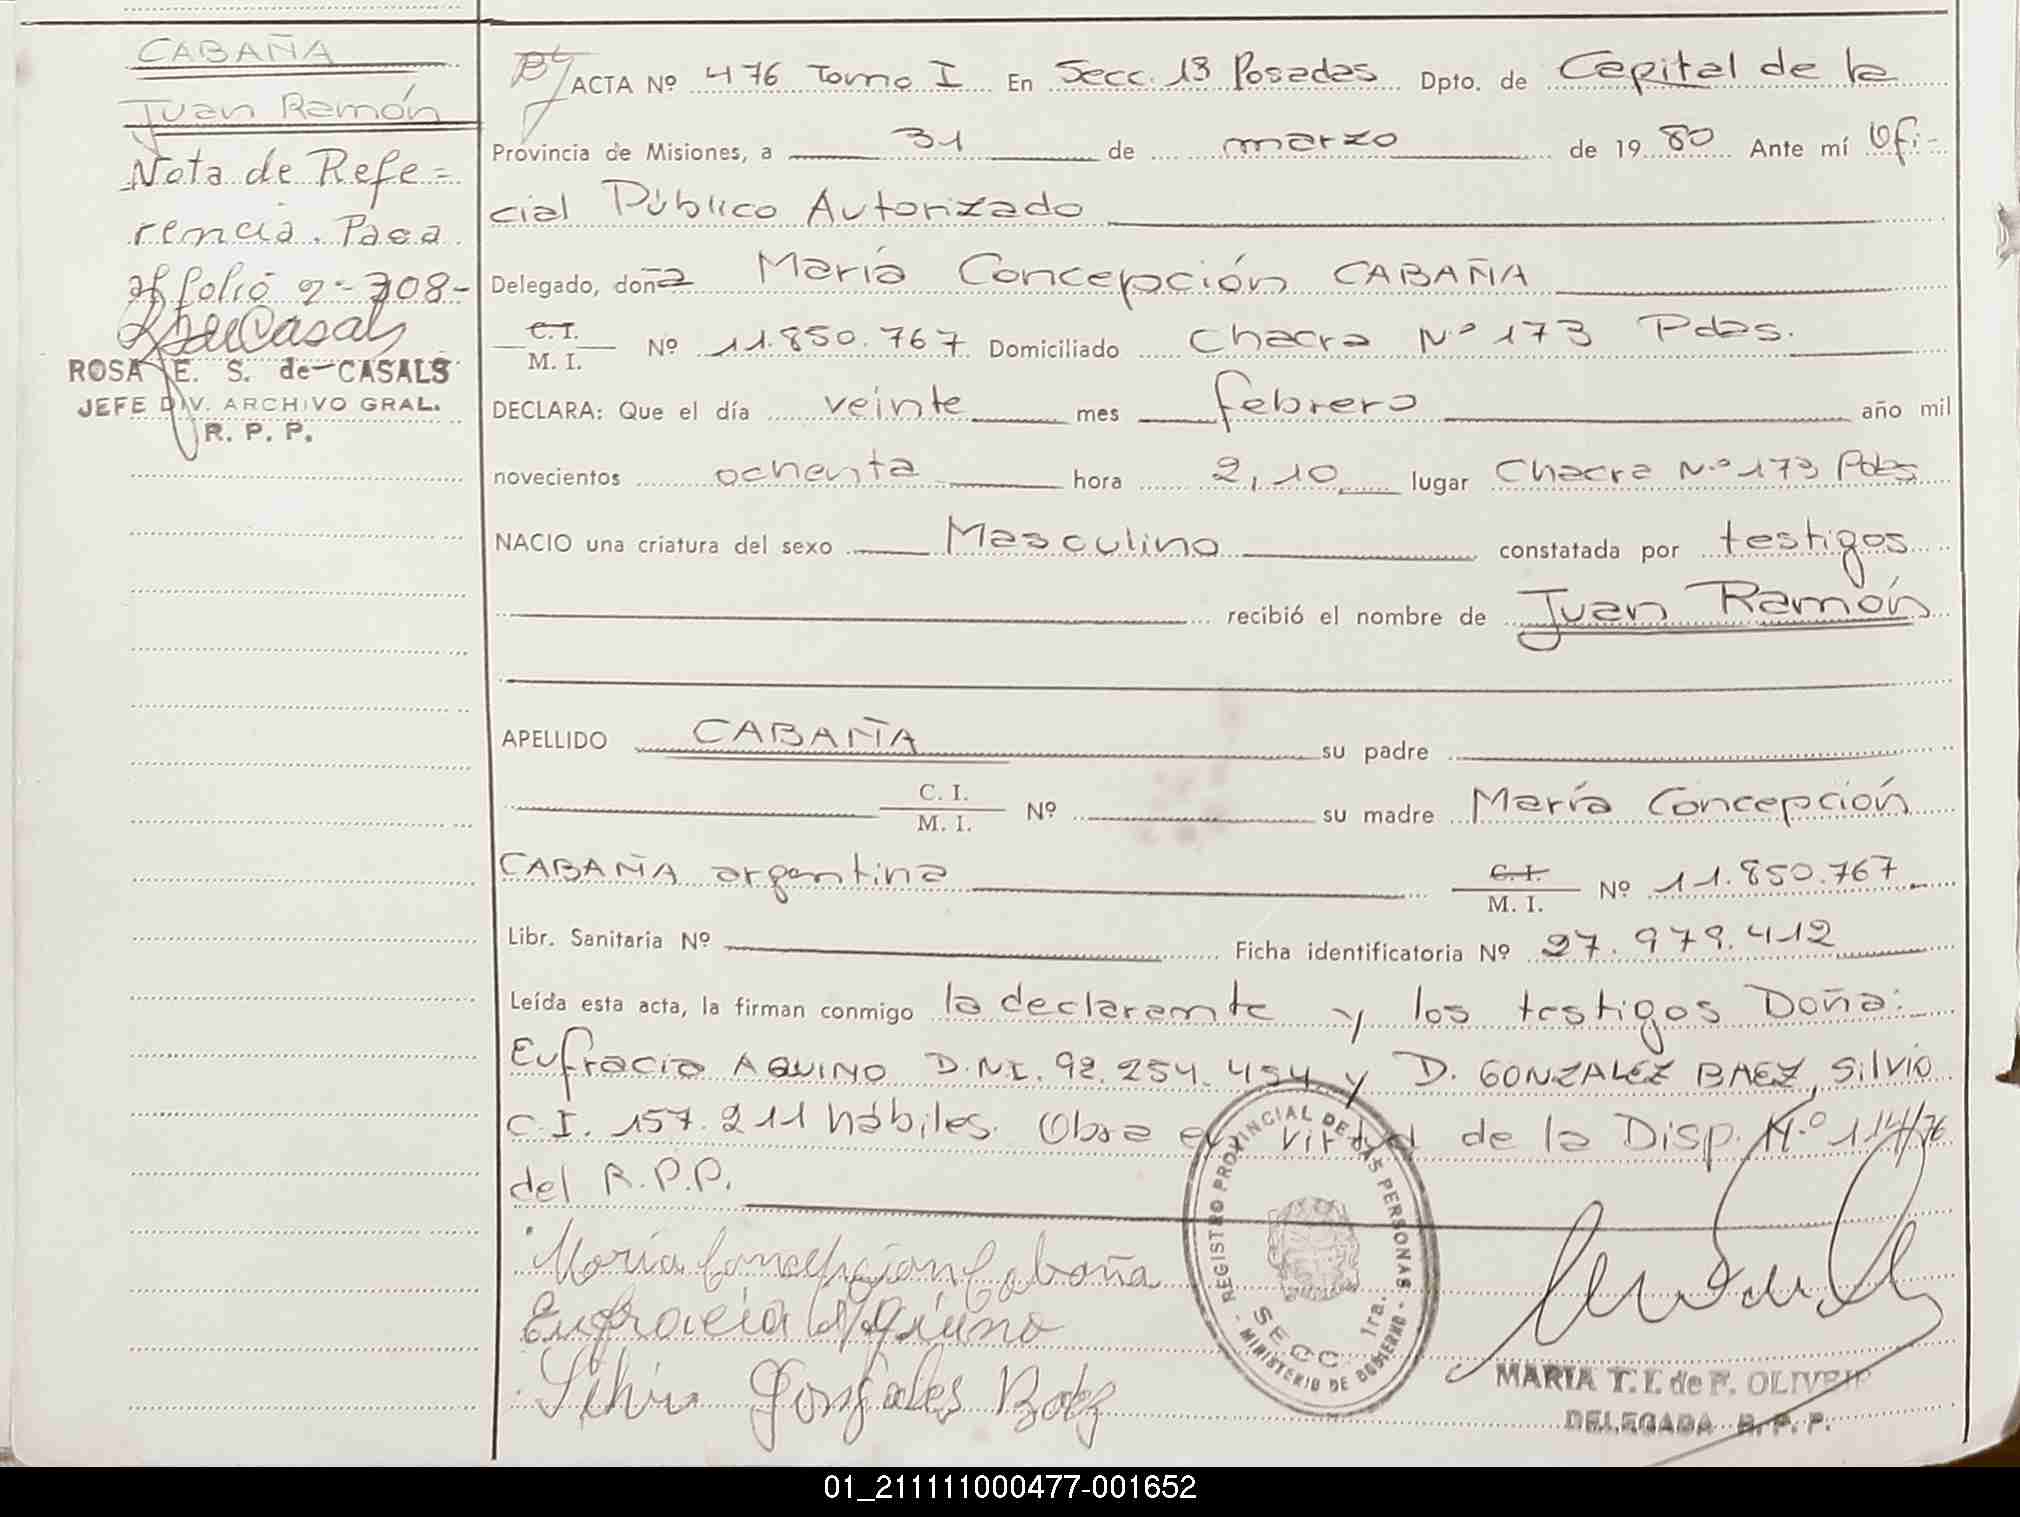 CABAÑA
Juan Ramón
Nota de Refe=
rencia. Pasa
al folio 2-708-
ROSA E. S. de CASALS
JEFE DIV. ARCHIVO GRAL.
R. P. P.
ACTA Nº 476 Tomo I En Secc. 13 Posadas Dpto. de Capital de la
Provincia de Misiones, a 31 de marzo de 1980 Ante mí Ofi-
cial Público Autorizado
Delegado, doña María Concepción CABAÑA
C. I.
M. I. Nº 11.850.767 Domiciliado Chacra Nº 173 Pdas.
DECLARA: Que el día veinte mes febrero año mil
novecientos ochenta hora 2,10 lugar Chacra Nº 173 Pdas
NACIO una criatura del sexo Masculino constatada por testigos
recibió el nombre de Juan Ramón
APELLIDO CABAÑA su padre
C. I.
M. I. Nº su madre María Concepción
CABAÑA argentina C. I.
M. I. Nº 11.850.767
Libr. Sanitaria Nº Ficha identificatoria Nº 27.979.412
Leída esta acta, la firman conmigo la declarante y los testigos Doña:
Eufracia AQUINO D.N.I. 92.254.494 y D. GONZALEZ BAEZ, Silvio
C.I. 157.211 hábiles. Obra en virtud de la Disp. N.º 114/76
del R.P.P.
María Concepcion Cabaña
Eufracia Aquino
Silvio Gonzales Baez
REGISTRO PROVINCIAL DE LAS PERSONAS
SECC. 1ra.
- MINISTERIO DE GOBIERNO -
MARIA T. I. de F. OLIVEIR
DELEGADA R. P. P.
01_211111000477-001652